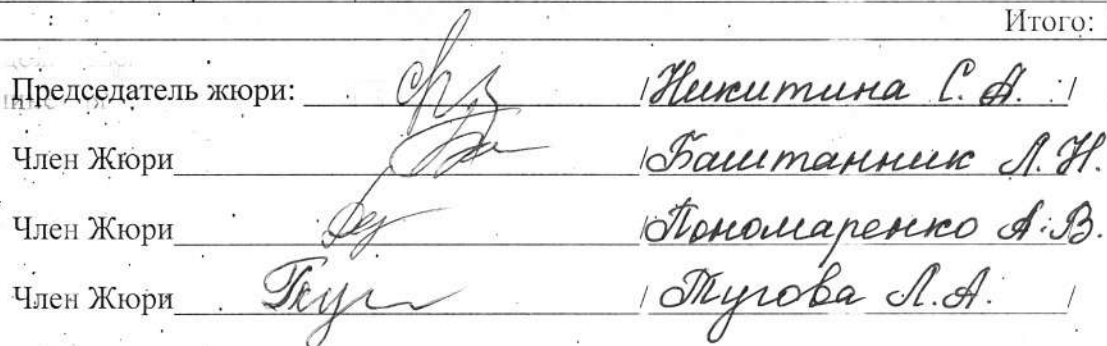 Итого:
Председатель жюри: /Никитина С. А. /
Член Жюри /Баштанник Л. Н.
Член Жюри /Пономаренко А. В.
Член Жюри / Тугова Л. А. /